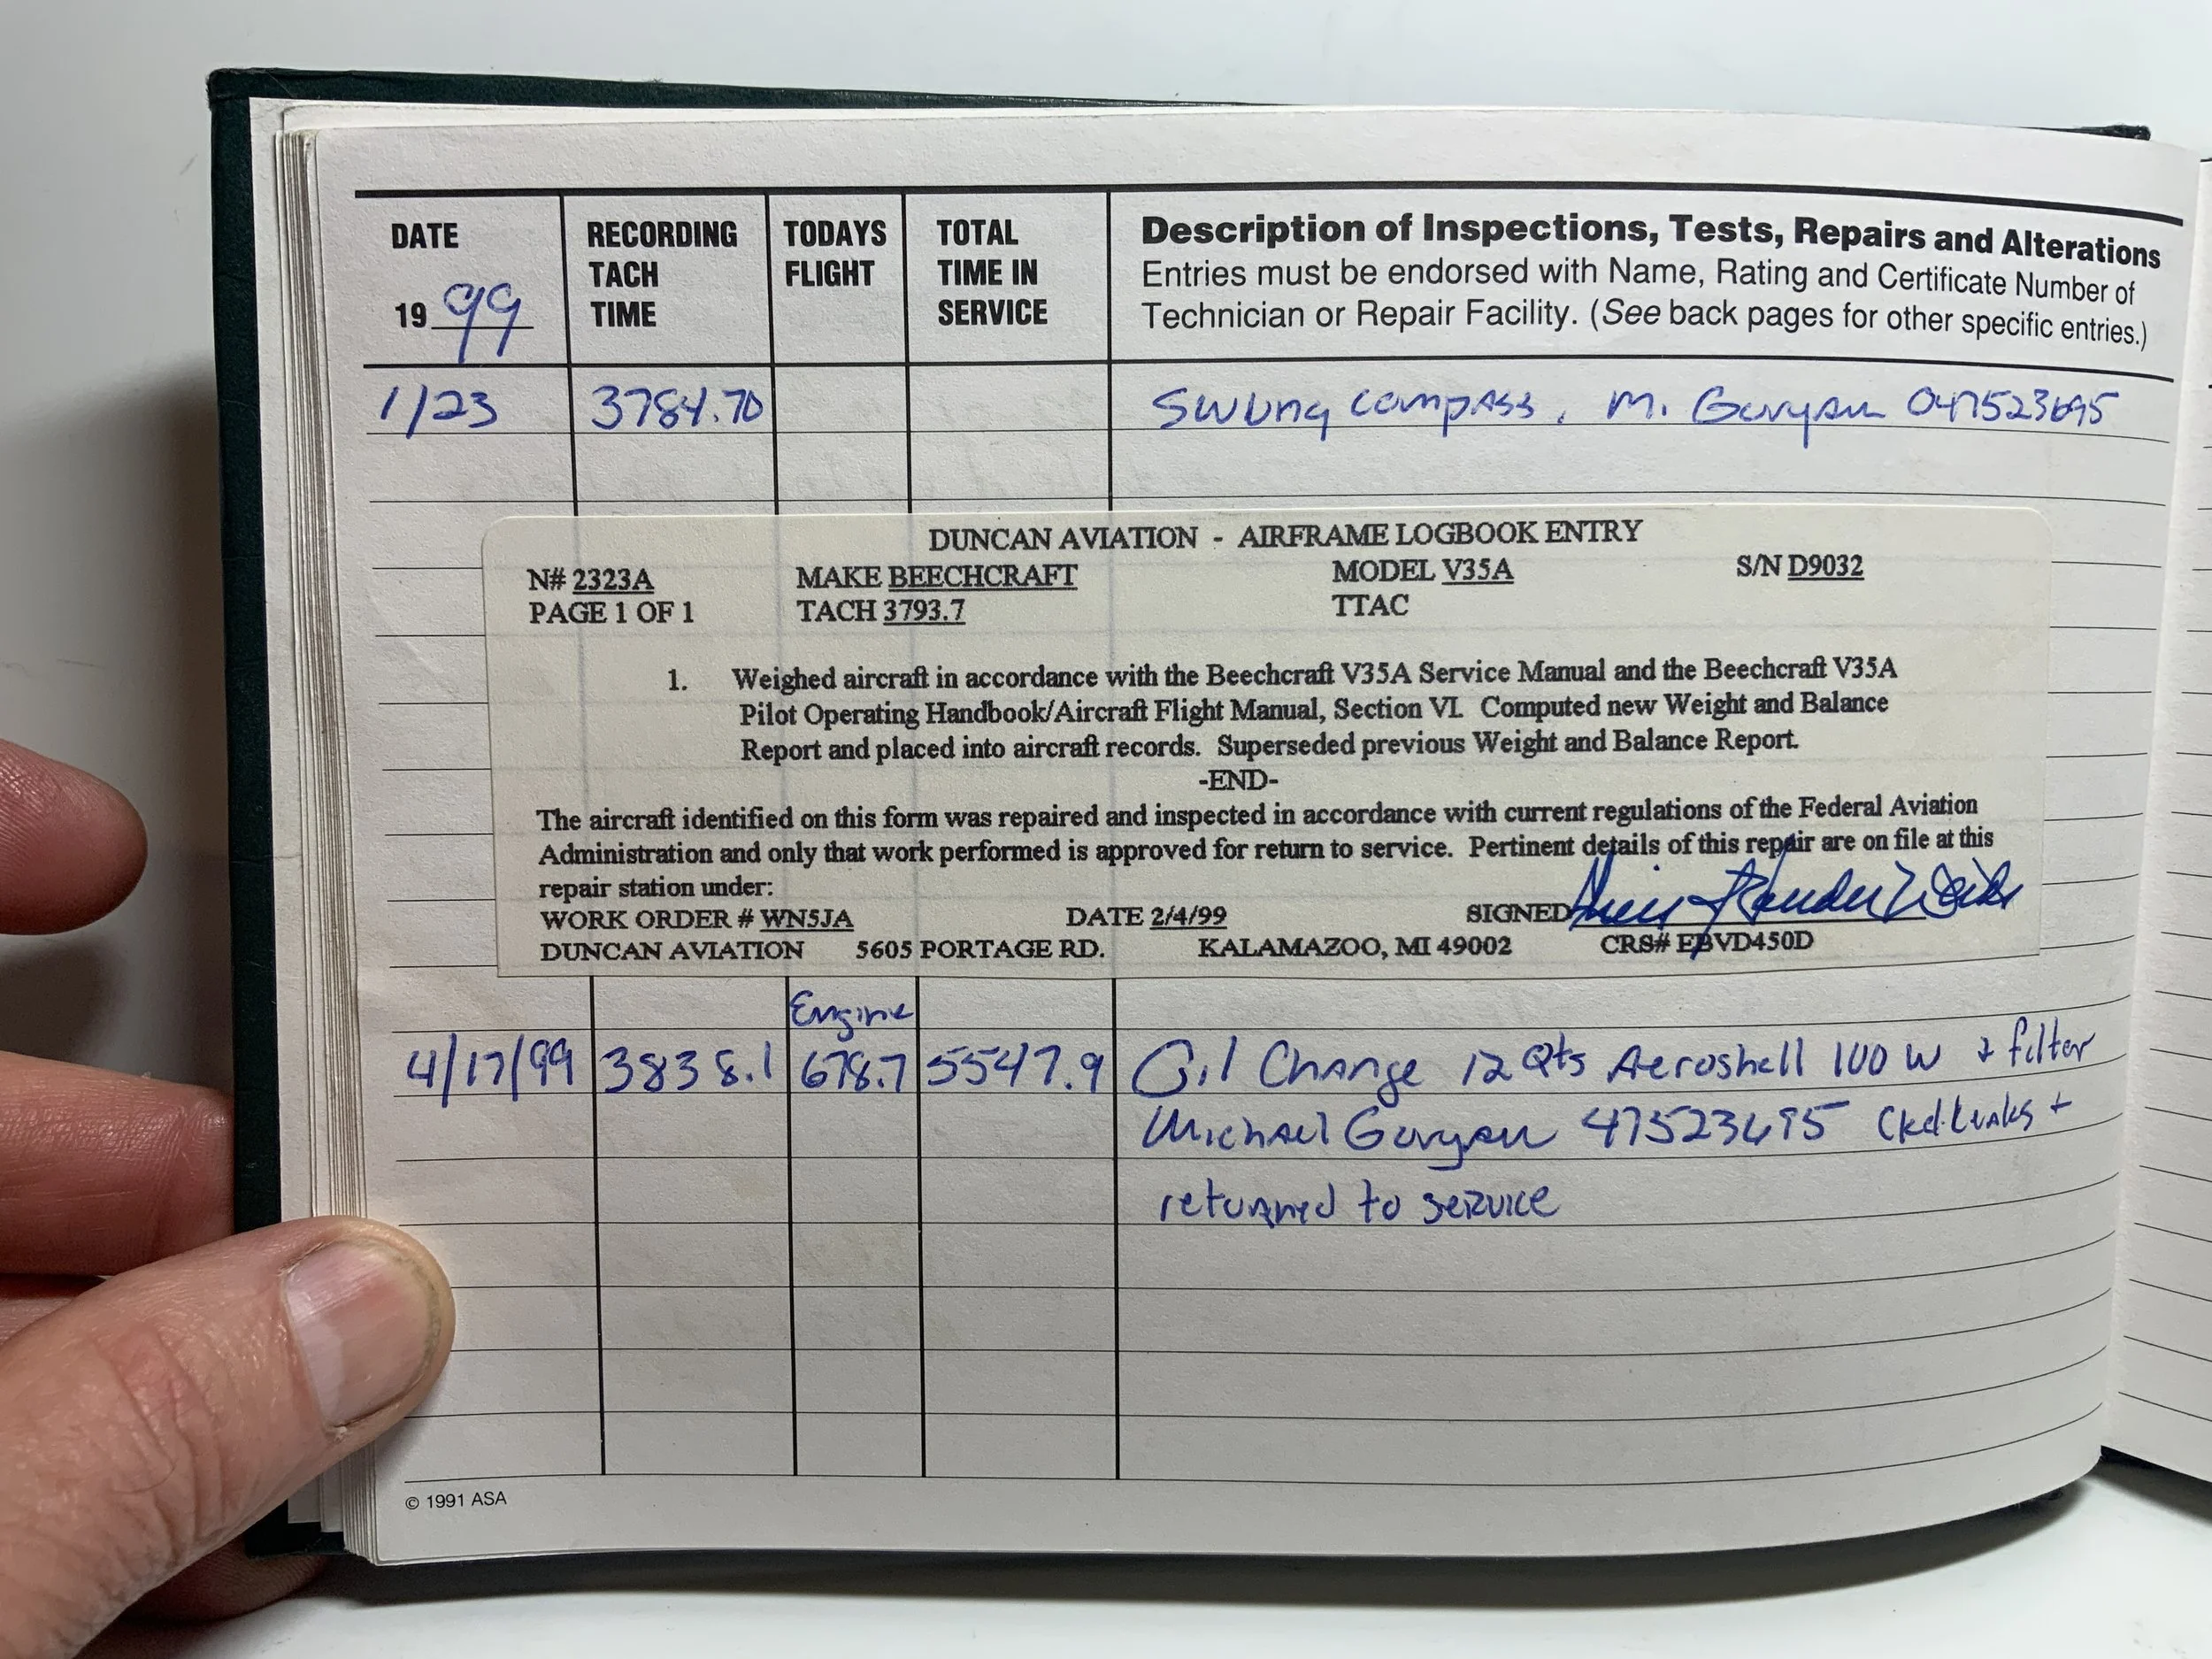 DATE
RECORDING TACH TIME
TODAYS FLIGHT
TOTAL TIME IN SERVICE
Description of Inspections, Tests, Repairs and Alterations
Entries must be endorsed with Name, Rating and Certificate Number of
Technician or Repair Facility. (See back pages for other specific entries.)
19 99
1/23 3784.70 Swung compass. M. 
DUNCAN AVIATION - AIRFRAME LOGBOOK ENTRY
N# 2323A MAKE BEECHCRAFT MODEL V35A S/N D9032
PAGE 1 OF 1 TACH 3793.7 TTAC
1. Weighed aircraft in accordance with the Beechcraft V35A Service Manual and the Beechcraft V35A
Pilot Operating Handbook/Aircraft Flight Manual, Section VI. Computed new Weight and Balance
Report and placed into aircraft records. Superseded previous Weight and Balance Report.
-END-
The aircraft identified on this form was repaired and inspected in accordance with current regulations of the Federal Aviation
Administration and only that work performed is approved for return to service. Pertinent details of this repair are on file at this
repair station under:
WORK ORDER # WN5JA DATE 2/4/99 SIGNED
DUNCAN AVIATION 5605 PORTAGE RD. KALAMAZOO, MI 49002 CRS# EBVD450D
Engine
4/17/99 3838.1 678.7 5547.9 Oil Change 12 Qts Aeroshell 100 W + filter
Michael 47523695 Ckd. Leaks +
returned to service
© 1991 ASA